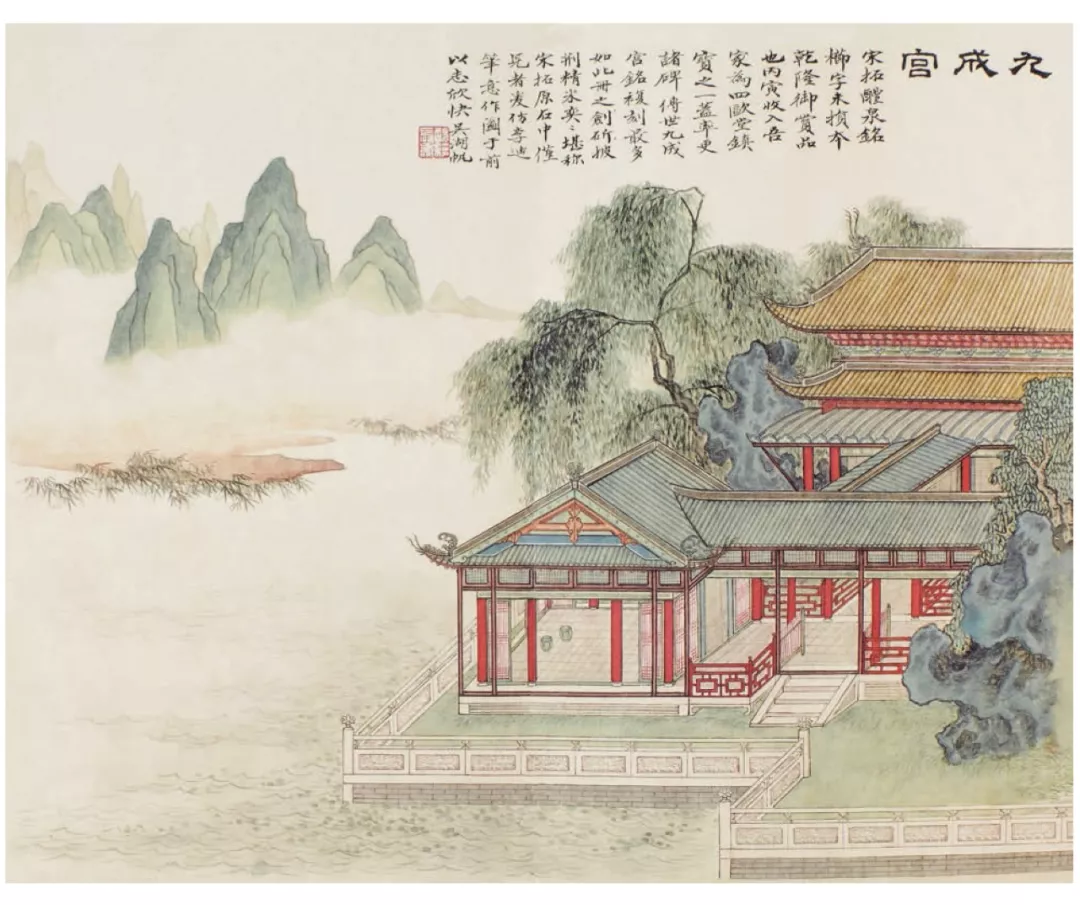 九成宮
宋拓醴泉銘
櫛字未損本
乾隆御賞品
也丙寅收入吾
家為四歐堂鎮
寶之一蓋率更
諸碑 傳世九成
宮銘複刻最多
如此冊之劍斫披
荆精采奕〻堪称
宋拓原石中僅
見者爰仿李迪
筆意作圖于前
以志欣快吴湖帆